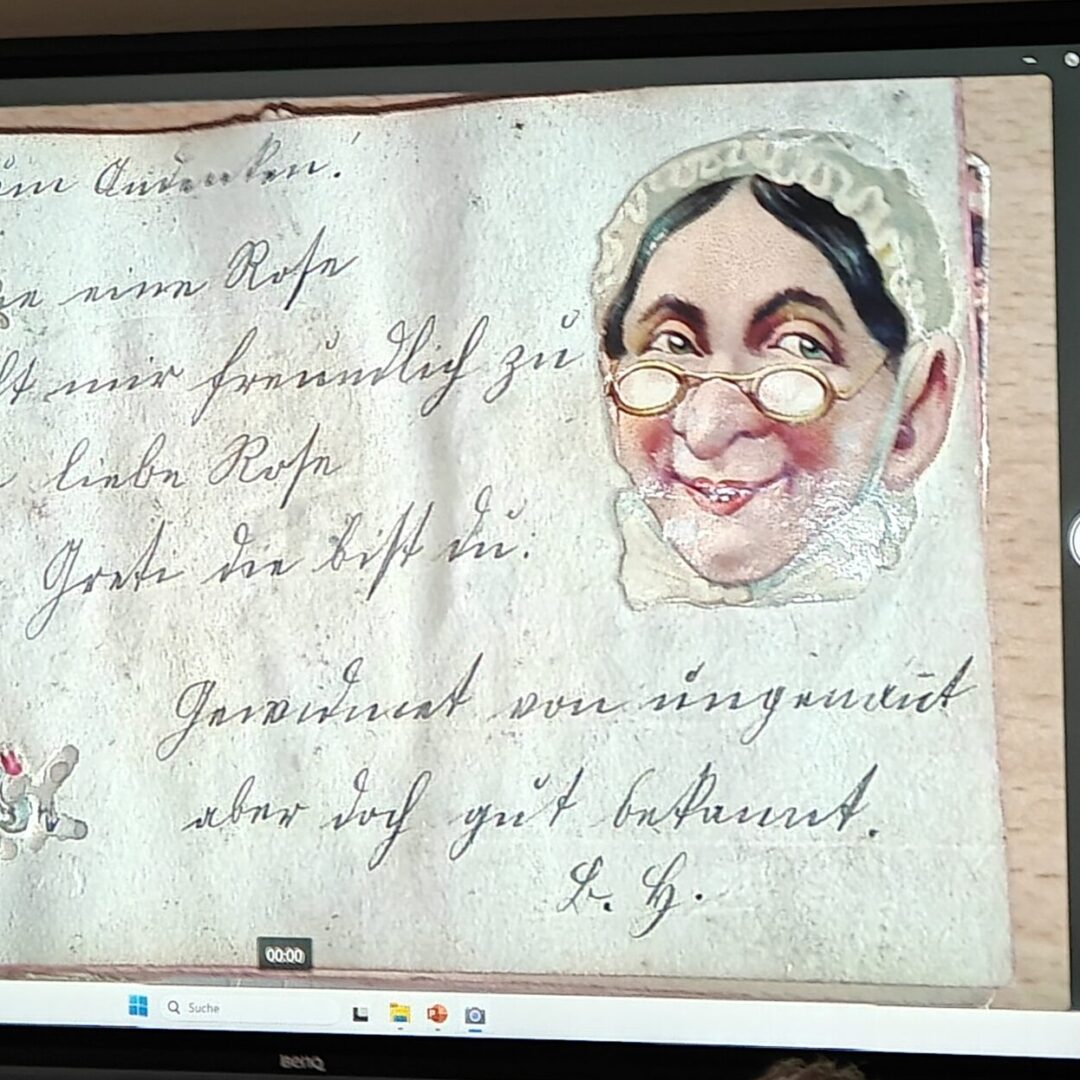 um Andenken!
eine Rose
lt mir freundlich zu
liebe Rose
Greti die bist du.
Gewidmet von ungenant
aber doch gut bekannt.
B. H.
00:00
Suche
BenQ